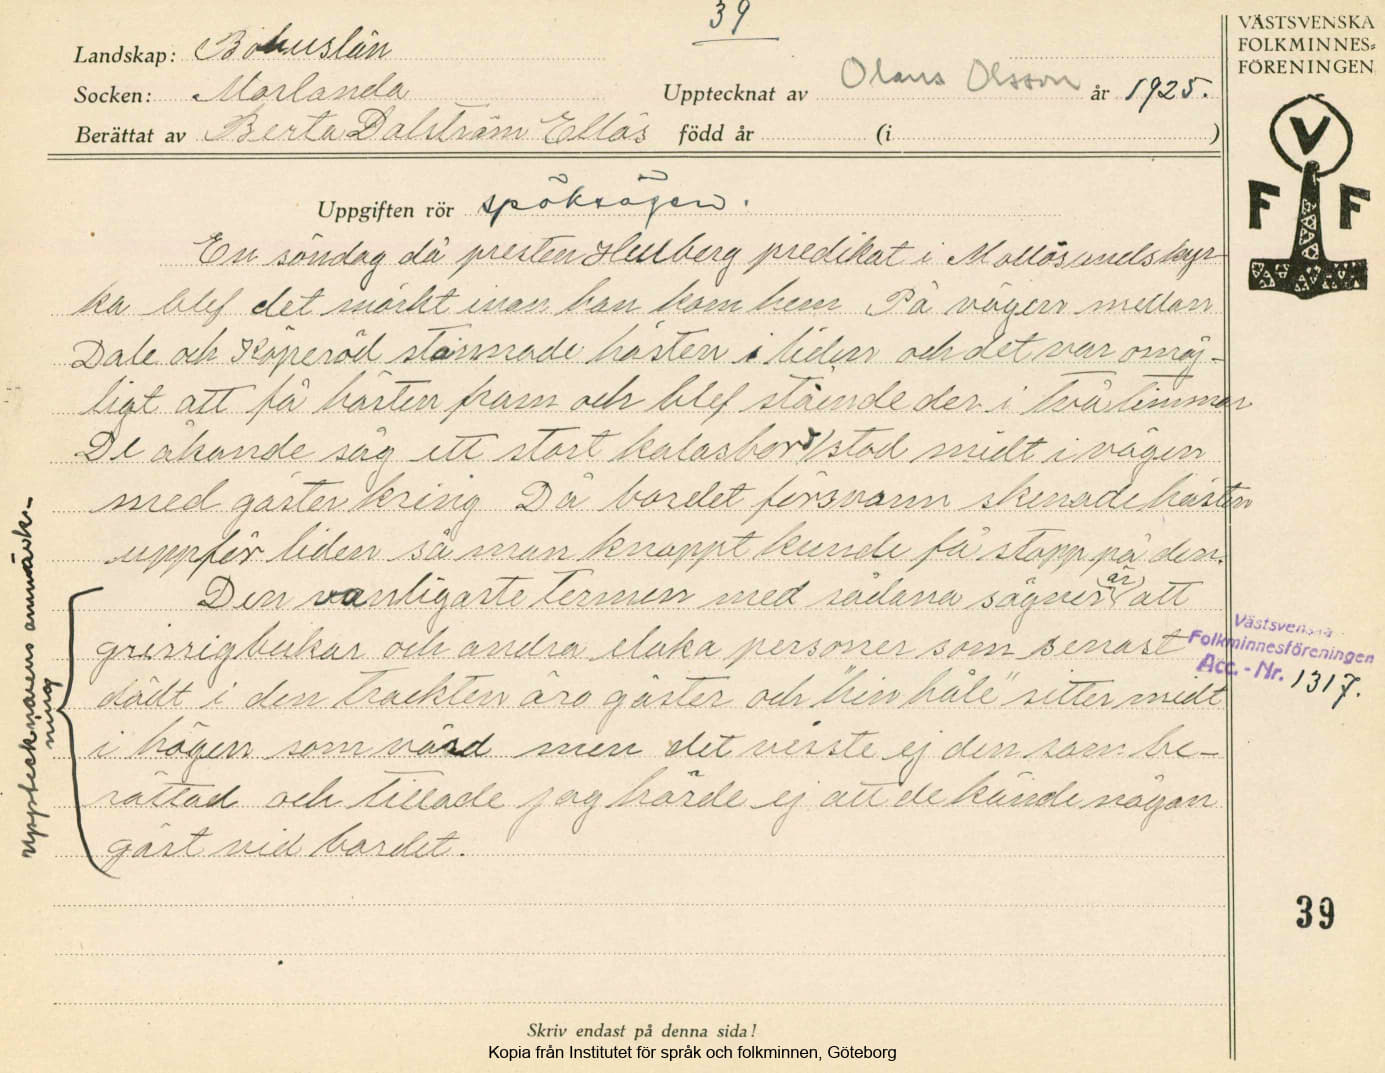 39
Landskap: Bohuslän
Socken: Morlanda
Upptecknat av Olaus Olsson år 1925.
Berättat av Berta Dalström Ellös född år (i )
VÄSTSVENSKA
FOLKMINNES=
FÖRENINGEN
V
F F
Uppgiften rör spöksägen.
En söndag då presten Hulberg predikat i Mollösundskyr-
ka blef det mörkt inan han kom hem På vägen mellan
Dale och Köperöd stannade hästen i liden och det var omöj-
ligt att få hästen fram och blef stående der i två timmar
De åkande såg ett stort kalasbord stod midt i vägen
med gäster kring Då bordet försvann skenade hästen
uppför liden så man knappt kunde få stopp på den.
Den vanligaste termen med sådana sägner är att
girrigbukar och andra elaka personer som senast
dödt i den trackten äro gäster och "hin håle" sitter midt
i högen som värd men det visste ej den som be-
rättad och tillade jag hörde ej att de kände någon
gäst vid bordet.
Upptecknarens anmärk-
ning
Västsvenska
Folkminnesföreningen
Acc. - Nr. 1317.
39
Skriv endast på denna sida!
Kopia från Institutet för språk och folkminnen, Göteborg